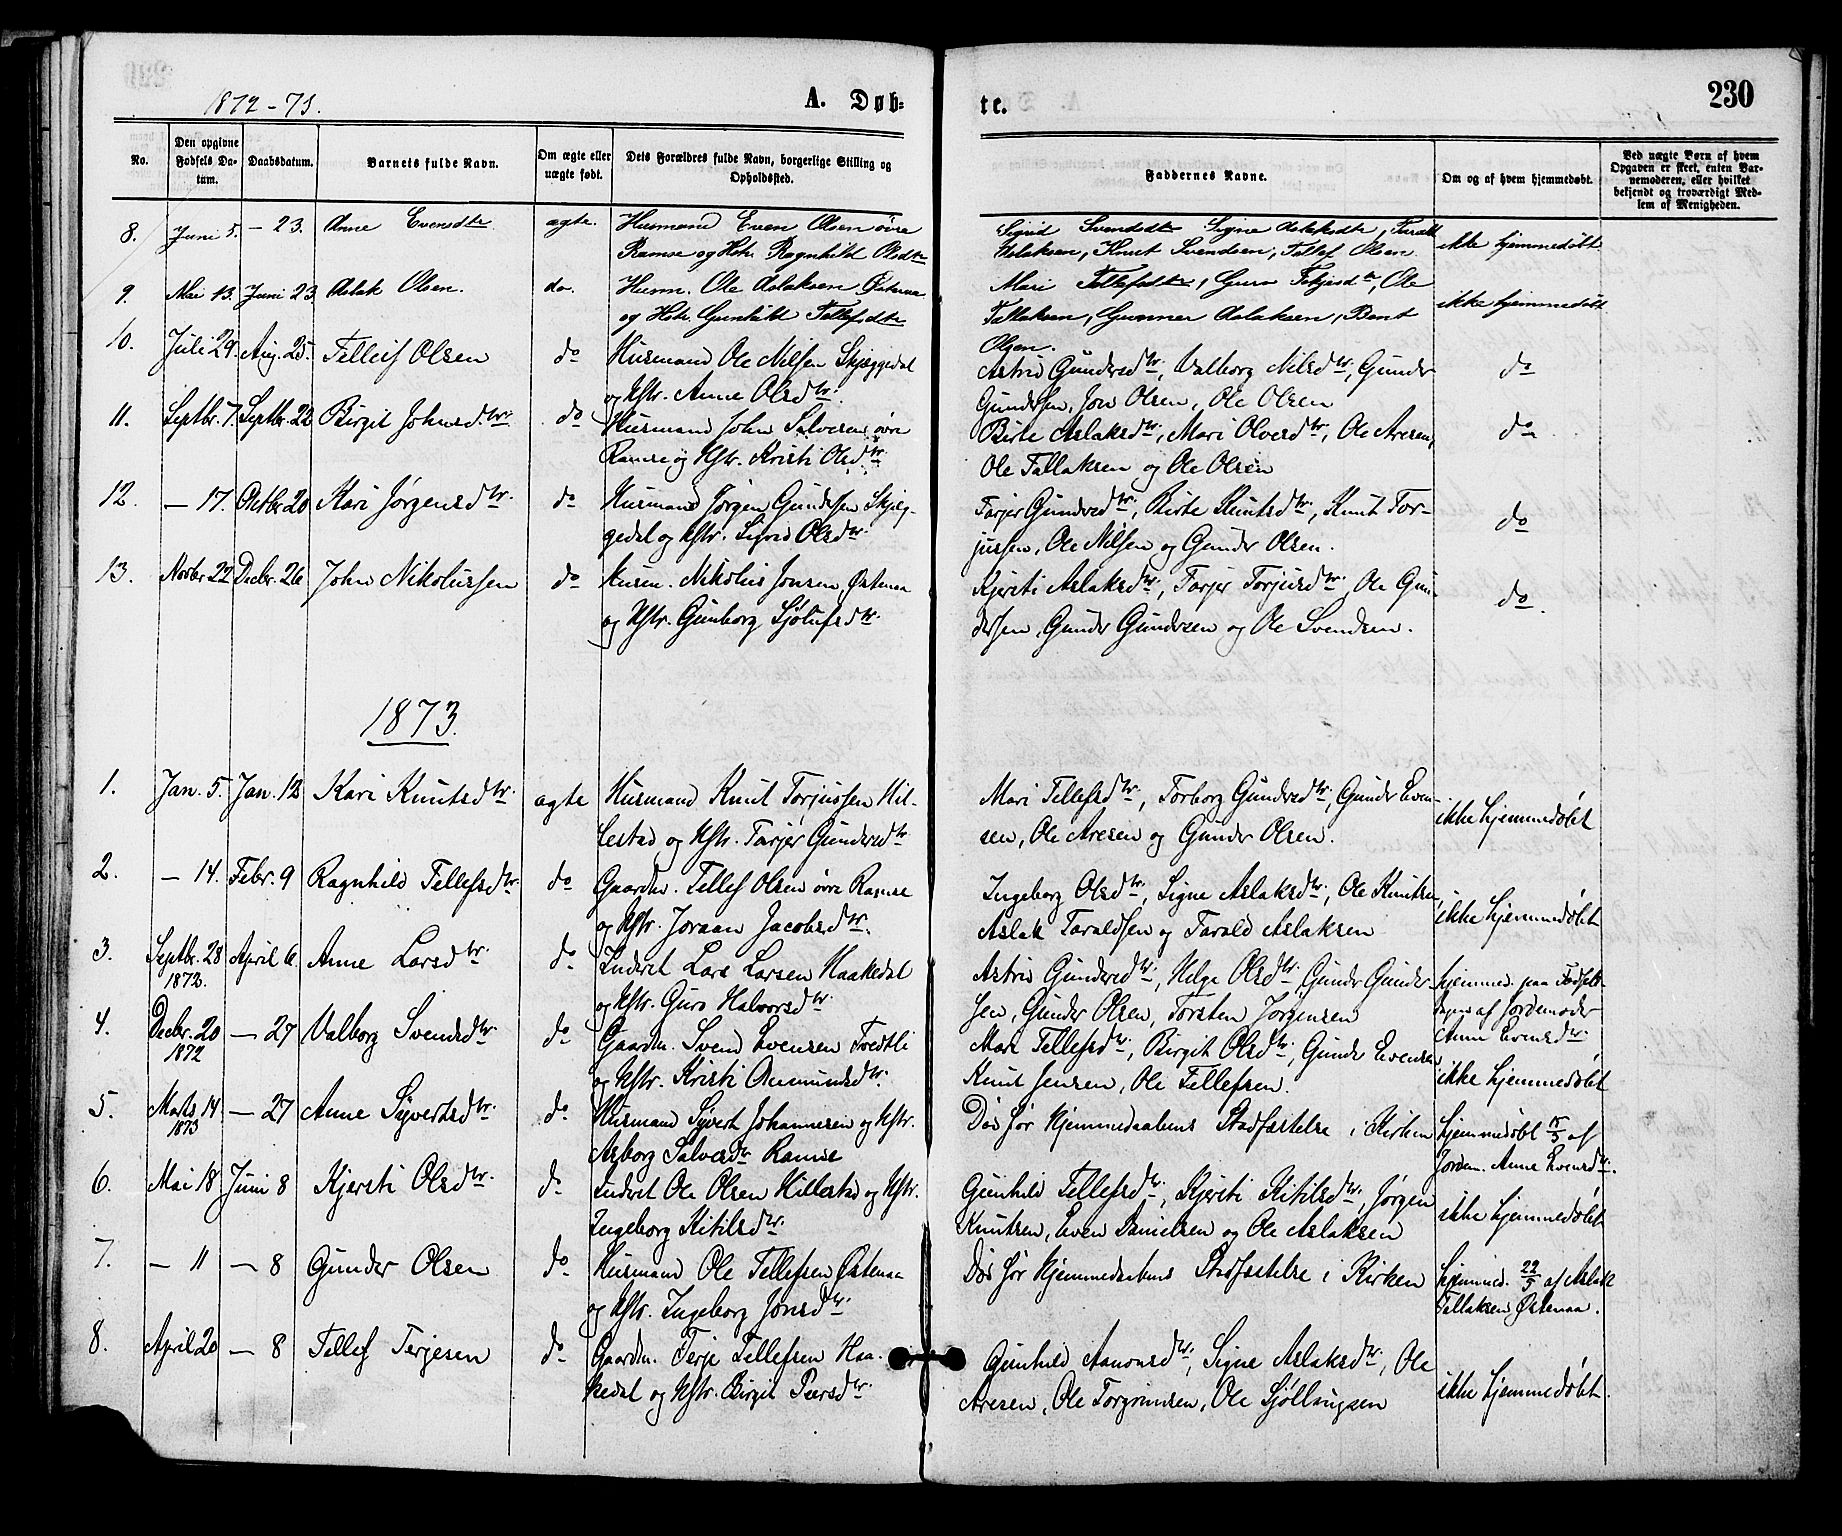 1872-73.
A. Døb-
te.
230
No.
Den opgivne Fødsels Datum.
Daabsdatum.
Barnets fulde Navn.
Om ægte eller uægte født.
Dets Forældres fulde Navn, borgerlige Stilling og Opholdssted.
Faddernes Navne.
Om og af hvem hjemmedøbt.
Ved uægte Børn af hvem Opgaven er skeet, enten Barnemoderen, eller hvilket bekjendt og troværdigt Medlem af Menigheden.
8. Juni 5. — 23. Anne Evensdtr ægte. Husmand Even Olsen øvre
Ramse og Hstr Ragnhild Olsdtr
Sigrid Svendsdtr Signe Aslaksdtr, Tarald
Aslaksen, Knut Svendsen, Tellef Olsen.
ikke hjemmedøbt
9. Mai 13. Juni 23. Aslak Olsen. do. Husm. Ole Aslaksen Østenaa
og Hstr Gunhild Tellefsdtr
Mari Tellefsdtr, Guro Terjesdtr, Ole
Tallaksen, Gunnar Aslaksen, Bent
Olsen.
ikke hjemmedøbt
10. Juli 29. Aug. 25. Telleif Olsen do Husmand Ole Nilsen Skjæggedal
og Hstr. Anne Olsdtr.
Astrid Gundersdtr, Valborg Nilsdtr, Gunder
Gundersen, Jon Olsen, Ole Olsen
do
11. Septbr. 7. Septbr. 22 Birgit Johnsdtr. do Husmand John Salvesen øvre
Ramse og Hstr. Kristi Olsdtr
Birte Aslaksdtr, Mari Olversdtr, Ole Aresen,
Ole Tallaksen og Ole Olsen
do
12. — 17. Oktbr 20 Kari Jørgensdtr. do Husmand Jørgen Gundersen Skjæg-
gedal og Hstr. Sigrid Olsdtr.
Tarjer Gundersdtr, Birte Knutsdtr, Knut Tor-
jussen, Ole Nilsen og Gunder Olsen.
do
13. Novbr 22 Decbr. 26 John Nikolussen do Husm. Nikolus Jonsen Østenaa
og Hstr. Gunborg Sjølufsdtr.
Kjersti Aslaksdtr, Tarjer Torjusdtr, Ole Gun-
dersen, Gunder Gundersen og Ole Svendsen.
do.
1873.
1. Jan. 5. Jan. 12 Kari Knutsdtr. ægte Husmand Knut Torjussen Hil-
lestad og Hstr. Tarjer Gundersdtr
Mari Tellefsdtr, Torborg Gundersdtr, Gunder Even-
sen, Ole Aresen og Gunder Olsen.
ikke hjemmedøbt
2. — 14. Febr. 9 Ragnhild Tellefsdtr do Gaardm. Tellef Olsen øvre Ramse
og Hstr. Joraan Jacobsdtr.
Ingeborg Olsdtr, Signe Aslaksdtr, Ole Knutsen,
Aslak Taraldsen og Tarald Aslaksen
ikke hjemmedøbt
3. Septbr. 28 1872. April 6. Anne Larsdtr do Inderst Lars Larsen Haakedal
og Hstr. Guro Halvorsdtr.
Astrid Gundersdtr, Helge Olsdtr, Gunder Gunder-
sen, Gunder Olsen, Torsten Jørgensen
hjemmed. paa Fødsels-
dagen af Jordemoder
Anne Evensdtr.
4. Decbr. 20 1872 — 27 Valborg Svensdtr do Gaardm. Svend Evensen Tredtli
og Hstr. Kristi Aamundsdtr.
Mari Tellefsdtr, Birgit Olsdtr, Gunder Evensen
Knut Jensen, Ole Tellefsen.
ikke hjemmedøbt
5. Marts 14. 1873 — 27 Anne Syvertsdtr do Husmand Syvert Johannesen og Hstr.
Asborg Salvesdtr Ramse
Død før Hjemmedaabens Stadfæstelse i Kirken
hjemmedøbt af
Jordem. Anne Evensdtr.
6. Mai 18 Juni 8 Kjersti Olsdtr. do Inderst Ole Olsen Hillestad og Hstr.
Ingeborg Kitilsdtr
Gunhild Tellefsdtr, Kjersti Kitilsdtr, Jørgen
Knutsen, Even Danielsen og Ole Aslaksen
ikke hjemmedøbt
7. — 11 — 8 Gunder Olsen do Husmand Ole Tellefsen Østenaa
og Hstr. Ingeborg Jonsdtr.
Død før Hjemmedaabens Stadfæstelse i Kirken
hjemmed. 22/5 af Aslak
Tallaksen Østenaa.
8. April 20 — 8 Tellef Terjesen do Gaardm. Terje Tellefsen Haa-
kedal og Hstr. Birgit Persdtr.
Gunhild Aanonsdtr, Signe Aslaksdtr, Ole
Aresen, Ole Torgrimsen, Ole Sjøllingsen
ikke hjemmedøbt.